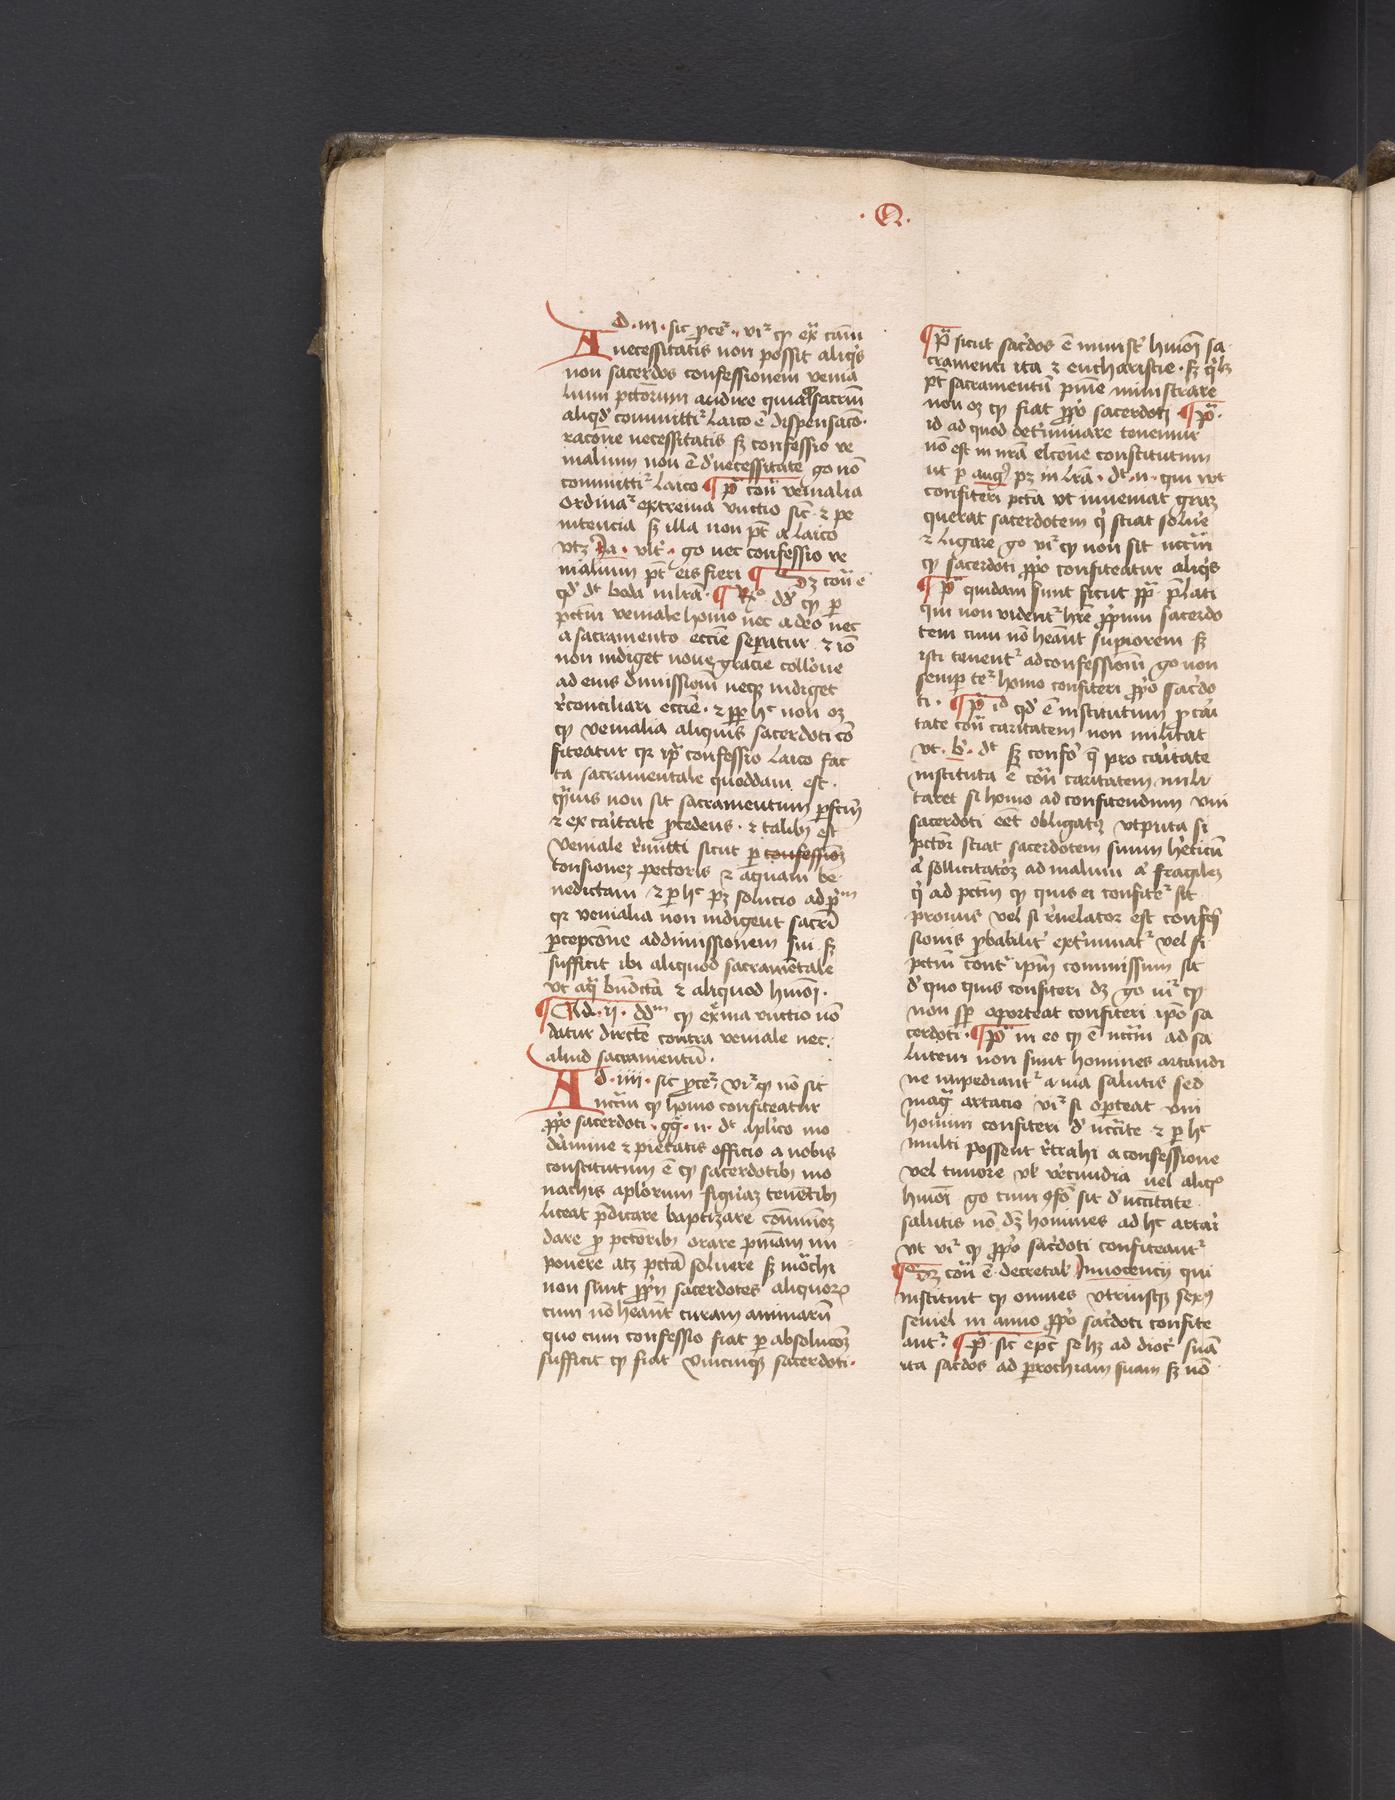 .Q.
Ad .iii. sic ꝓceꝛ. viꝛ ꝙ ex̄ cām
necessitatis non possit aliq̄s
non sacerdos confessionem venia
lium pctorum audire quia
aliqd̄ committiꝛ laico ē dispensacō
racōne necessitatis sꝫ confessio ve
nialium non ē d̄ necessitate go nō
committiꝛ laico ¶ p̄ᵃ cōn venialia
ordinaꝛ extrema vnctio sic̄ ⁊ pe
nitencia sꝫ illa non pt̄ a laico
go nec confessio ve
nialium pt̄ eis fieri ¶ Sꝫ cōn ē
qd̄ dt̄ beda in lrā. ¶ Rx̄ᵒ. dd̄ ꝙ ꝑ
pctm̄ veniale homo nec a deo nec
a sacramento eccīe sep̄atur ⁊ iō
non indiget noue gracie collōne
ad eius dimissionē neqꝫ indiget
r̄conciliari eccīe. ⁊ ꝓꝑ hᶜ non oꝫ
ꝙ venialia aliquis sacerdoti cō
fiteatur qꝛ ip̄a confessio laico fac
ta sacramentale quoddam est.
q̄uis non sit sacramentum ꝑfctū
⁊ ex caritate ꝓcedens. ⁊ talibꝫ est
veniale r̄mitti sicut ꝑ confessionꝫ
tonsionez pectoris ⁊ aquam be
nedictam ⁊ ꝑ hᶜ pꝫ solucio ad p̄ᵐ
qꝛ venialia non indigent sacrī
ꝑcepcōne ad dimissionem sui sꝫ
sufficit ibi aliquod sacramētale
vt aq̄ bn̄dictā ⁊ aliquod hmōi.
¶ Ad .ij. dd̄ᵐ ꝙ ex̄ma vnctio nō
datur directe contra veniale nec
aliud sacramentū.
Ad .iiii. sic ꝓceꝛ viꝛ ꝙ nō sit
nccm̄ ꝙ homo confiteatur
ꝓp̄o sacerdoti. gg̅. n. dt̄ aplico mo
d̄amine ⁊ pietatis officio a nobis
constitutum ē ꝙ sacerdotibꝫ mo
nachis aplorum figuraꝫ tenētibꝫ
liceat p̄dicare baptizare cōmunioꝫ
dare ꝓ pctoribꝫ orare pniam im
ponere atqꝫ pctā soluere sꝫ mōchi
non sunt ꝓp̄ij sacerdotes aliquorꝫ
cum nō heant curam animarū
quo cum confessio fiat ꝑ absolucōꝫ
sufficit ꝙ fiat vnicuiqꝫ sacerdoti.
¶ p̄ᵃ sicut sac̄dos ē minist̄ hmōi sa
cramenti ita ⁊ eucharistie. sꝫ qꝫlꝫ
pt̄ sacramentū pnīe ministrare
non oꝫ ꝙ fiat ꝓp̄o sacerdoti ¶ p̄ᵃ.
id ad quod determinare tenemur
nō est in nrā elcōne constitutum
ut ꝑ augꝰ pꝫ in lrā. dt̄ .n. qui vlt
confiteri pctā vt inueniat graꝫ
querat sacerdotem q̄ sciat solu̅e
⁊ ligare go viꝛ ꝙ non sit nccm̄
ꝙ sacerdoti ꝓp̄o confiteatur aliq̄s
¶ p̄ᵃ quidam sunt sicut pp̄ᵃ p̄lati
qui non videntꝛ hrē ꝓprium sacerdo
tem cum nō heant supiorem sꝫ
isti tenentꝛ ad confessionē go non
semꝑ teꝛ homo confiteri ꝓp̄o sac̄do
ti. ¶ p̄ᵃ id qd̄ ē institutum ꝓ cari
tate cōn caritatem non militat
vt .b̄. dt̄ sꝫ confō q̄ pro caritate
instituta ē cōn caritatem mili
taret si homo ad confitendum vni
sacerdoti eēt obligatꝰ vtputa si
pctor̄ sciat sacerdotem suum heticū
a̅ sollicitatoꝫ ad malum a̅ fragileꝫ
q̄ ad pctm̄ ꝙ quis ei confiteꝛ sit
pronus vel si r̄uelator est confes
sionis ꝓbabilit̄ extimatꝛ vel si
pctm̄ cont̄ ip̄m commissum sit
d̄ quo quis confiteri dꝫ go uiꝛ ꝙ
non sꝑ oporteat confiteri ip̄o sa
cerdoti. ¶ p̄ᵃ in eo ꝙ ē nccm̄ ad sa
lutem non sunt homines artandi
ne impediantꝛ a uia salutis sed
mag̅ artacio viꝛ si op̄teat vni
homini confiteri d̄ nccīte ⁊ ꝑ hᶜ
multi possent r̄trahi a confessione
vel timore vl̄ verecundia uel aliqᵒ
hmōi go cum ꝯfō sit d̄ nccitate
salutis nō dꝫ homines ad hᶜ artari
vt viꝛ ꝙ ꝓp̄o sac̄doti confiteantꝛ
¶ Sꝫ cōn ē decretal̄ Innocencij qui
instituit ꝙ omnes vtriusqꝫ sexꝰ
semel in anno ꝓp̄o sac̄doti confite
antꝛ ¶ p̄ᵃ sic̄ epc̄ se hꝫ ad dioc̄ suā
ita sac̄dos ad ꝑrochiam suam sꝫ nō